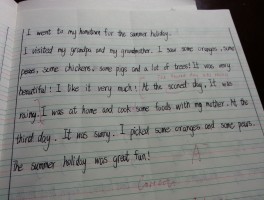 I went to my hometown for the summer holiday.
I visited my grandpa and my grandmother. I saw some oranges, some
pears, some chickens, some pigs and a lot of trees! It was very
beautiful! I like it very much! At the second day, It was
rainy. I was at home and cook some foods with my mother. At the
third day, It was sunny. I picked some oranges and some pears.
The summer holiday was great fun!
A